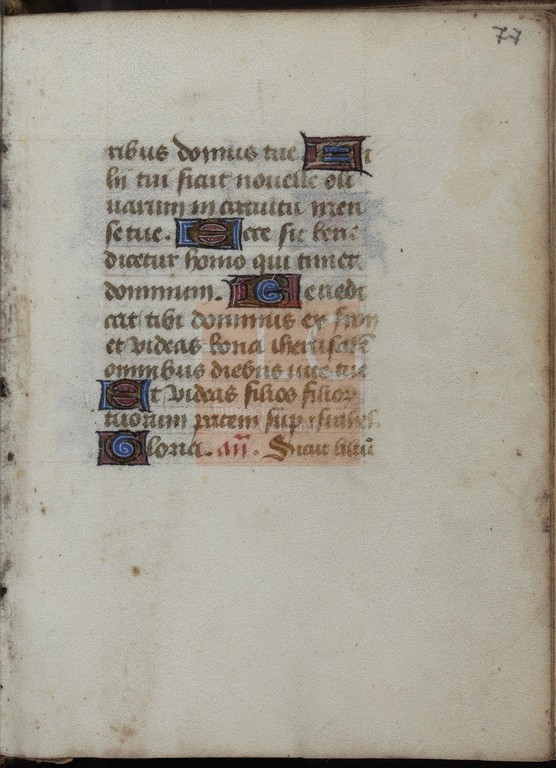 77
ribus domus tue. Fi
lii tui sicut nouelle oli
uarum in circuitu men
se tue. Ecce sic bene
dicetur homo qui timet
dominum. Benedi
cat tibi dominus ex sion
et videas bona iherusalē
omnibus diebus uite tue
Et videas filios filior
tuorum pacem sup israhel.
Gloria. añ. Sicut liliū